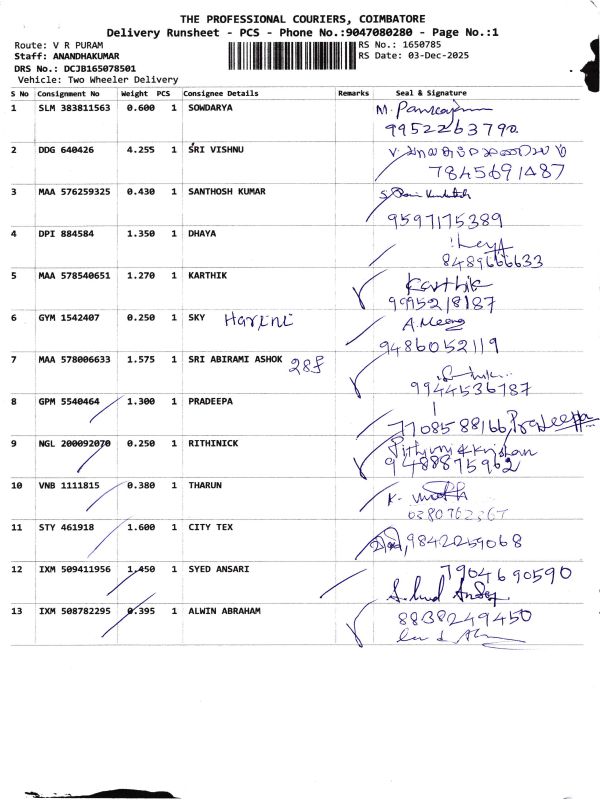 THE PROFESSIONAL COURIERS, COIMBATORE
Delivery Runsheet - PCS - Phone No.:9047080280 - Page No.:1
Route: V R PURAM RS No.: 1650785
Staff: ANANDHAKUMAR RS Date: 03-Dec-2025
DRS No.: DCJB165078501
Vehicle: Two Wheeler Delivery
S No Consignment No Weight PCS Consignee Details Remarks Seal & Signature
1 SLM 383811563 0.600 1 SOWDARYA
9952263790
2 DDG 640426 4.255 1 SRI VISHNU
7845691487
3 MAA 576259325 0.430 1 SANTHOSH KUMAR
9597175389
4 DPI 884584 1.350 1 DHAYA
8489666633
5 MAA 578540651 1.270 1 KARTHIK Karthik
9995218187
6 GYM 1542407 0.250 1 SKY Harini A. Meena
9486052119
7 MAA 578006633 1.575 1 SRI ABIRAMI ASHOK 28f
9944536787
8 GPM 5540464 1.300 1 PRADEEPA
7708588166, Pradeeppa
9 NGL 200092070 0.250 1 RITHINICK
9488875962
10 VNB 1111815 0.380 1 THARUN
11 STY 461918 1.600 1 CITY TEX
9842259068
12 IXM 509411956 1.450 1 SYED ANSARI 7904690590
13 IXM 508782295 0.395 1 ALWIN ABRAHAM 8838249450